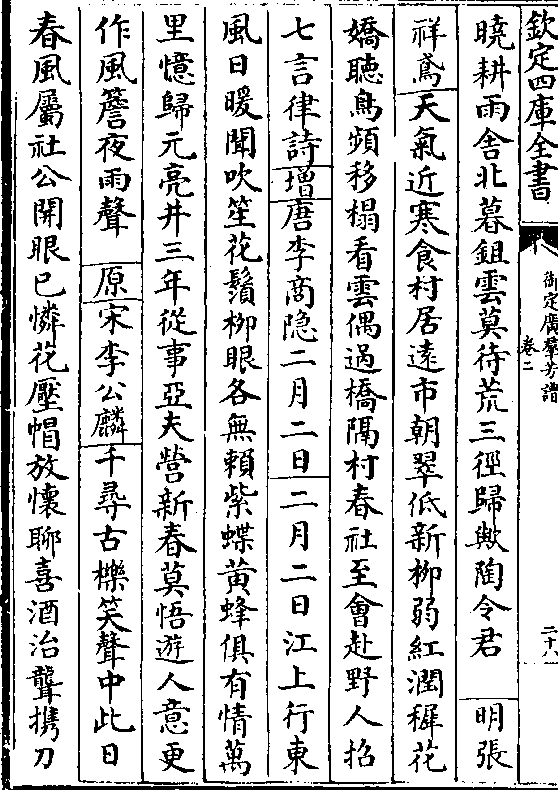 欽定四庫全書
御定廣羣芳譜
卷二
二十八
曉耕雨舍北暮鉏雲莫待荒三徑歸歟陶令君 明張
祥鳶天氣近寒食村居遠市朝翠低新柳弱紅潤穉花
嬌聽鳥頻移榻看雲偶過橋隔村春社至會赴野人招
七言律詩增唐李商隱二月二日二月二日江上行東
風日暖聞吹笙花鬚柳眼各無賴紫蝶黃蜂俱有情萬
里憶歸元亮井三年從事亞夫營新春莫悟遊人意更
作風簷夜雨聲 原宋李公麟千尋古櫟笑聲中此日
春風屬社公開眼已憐花壓帽放懷聊喜酒治聾攜刀